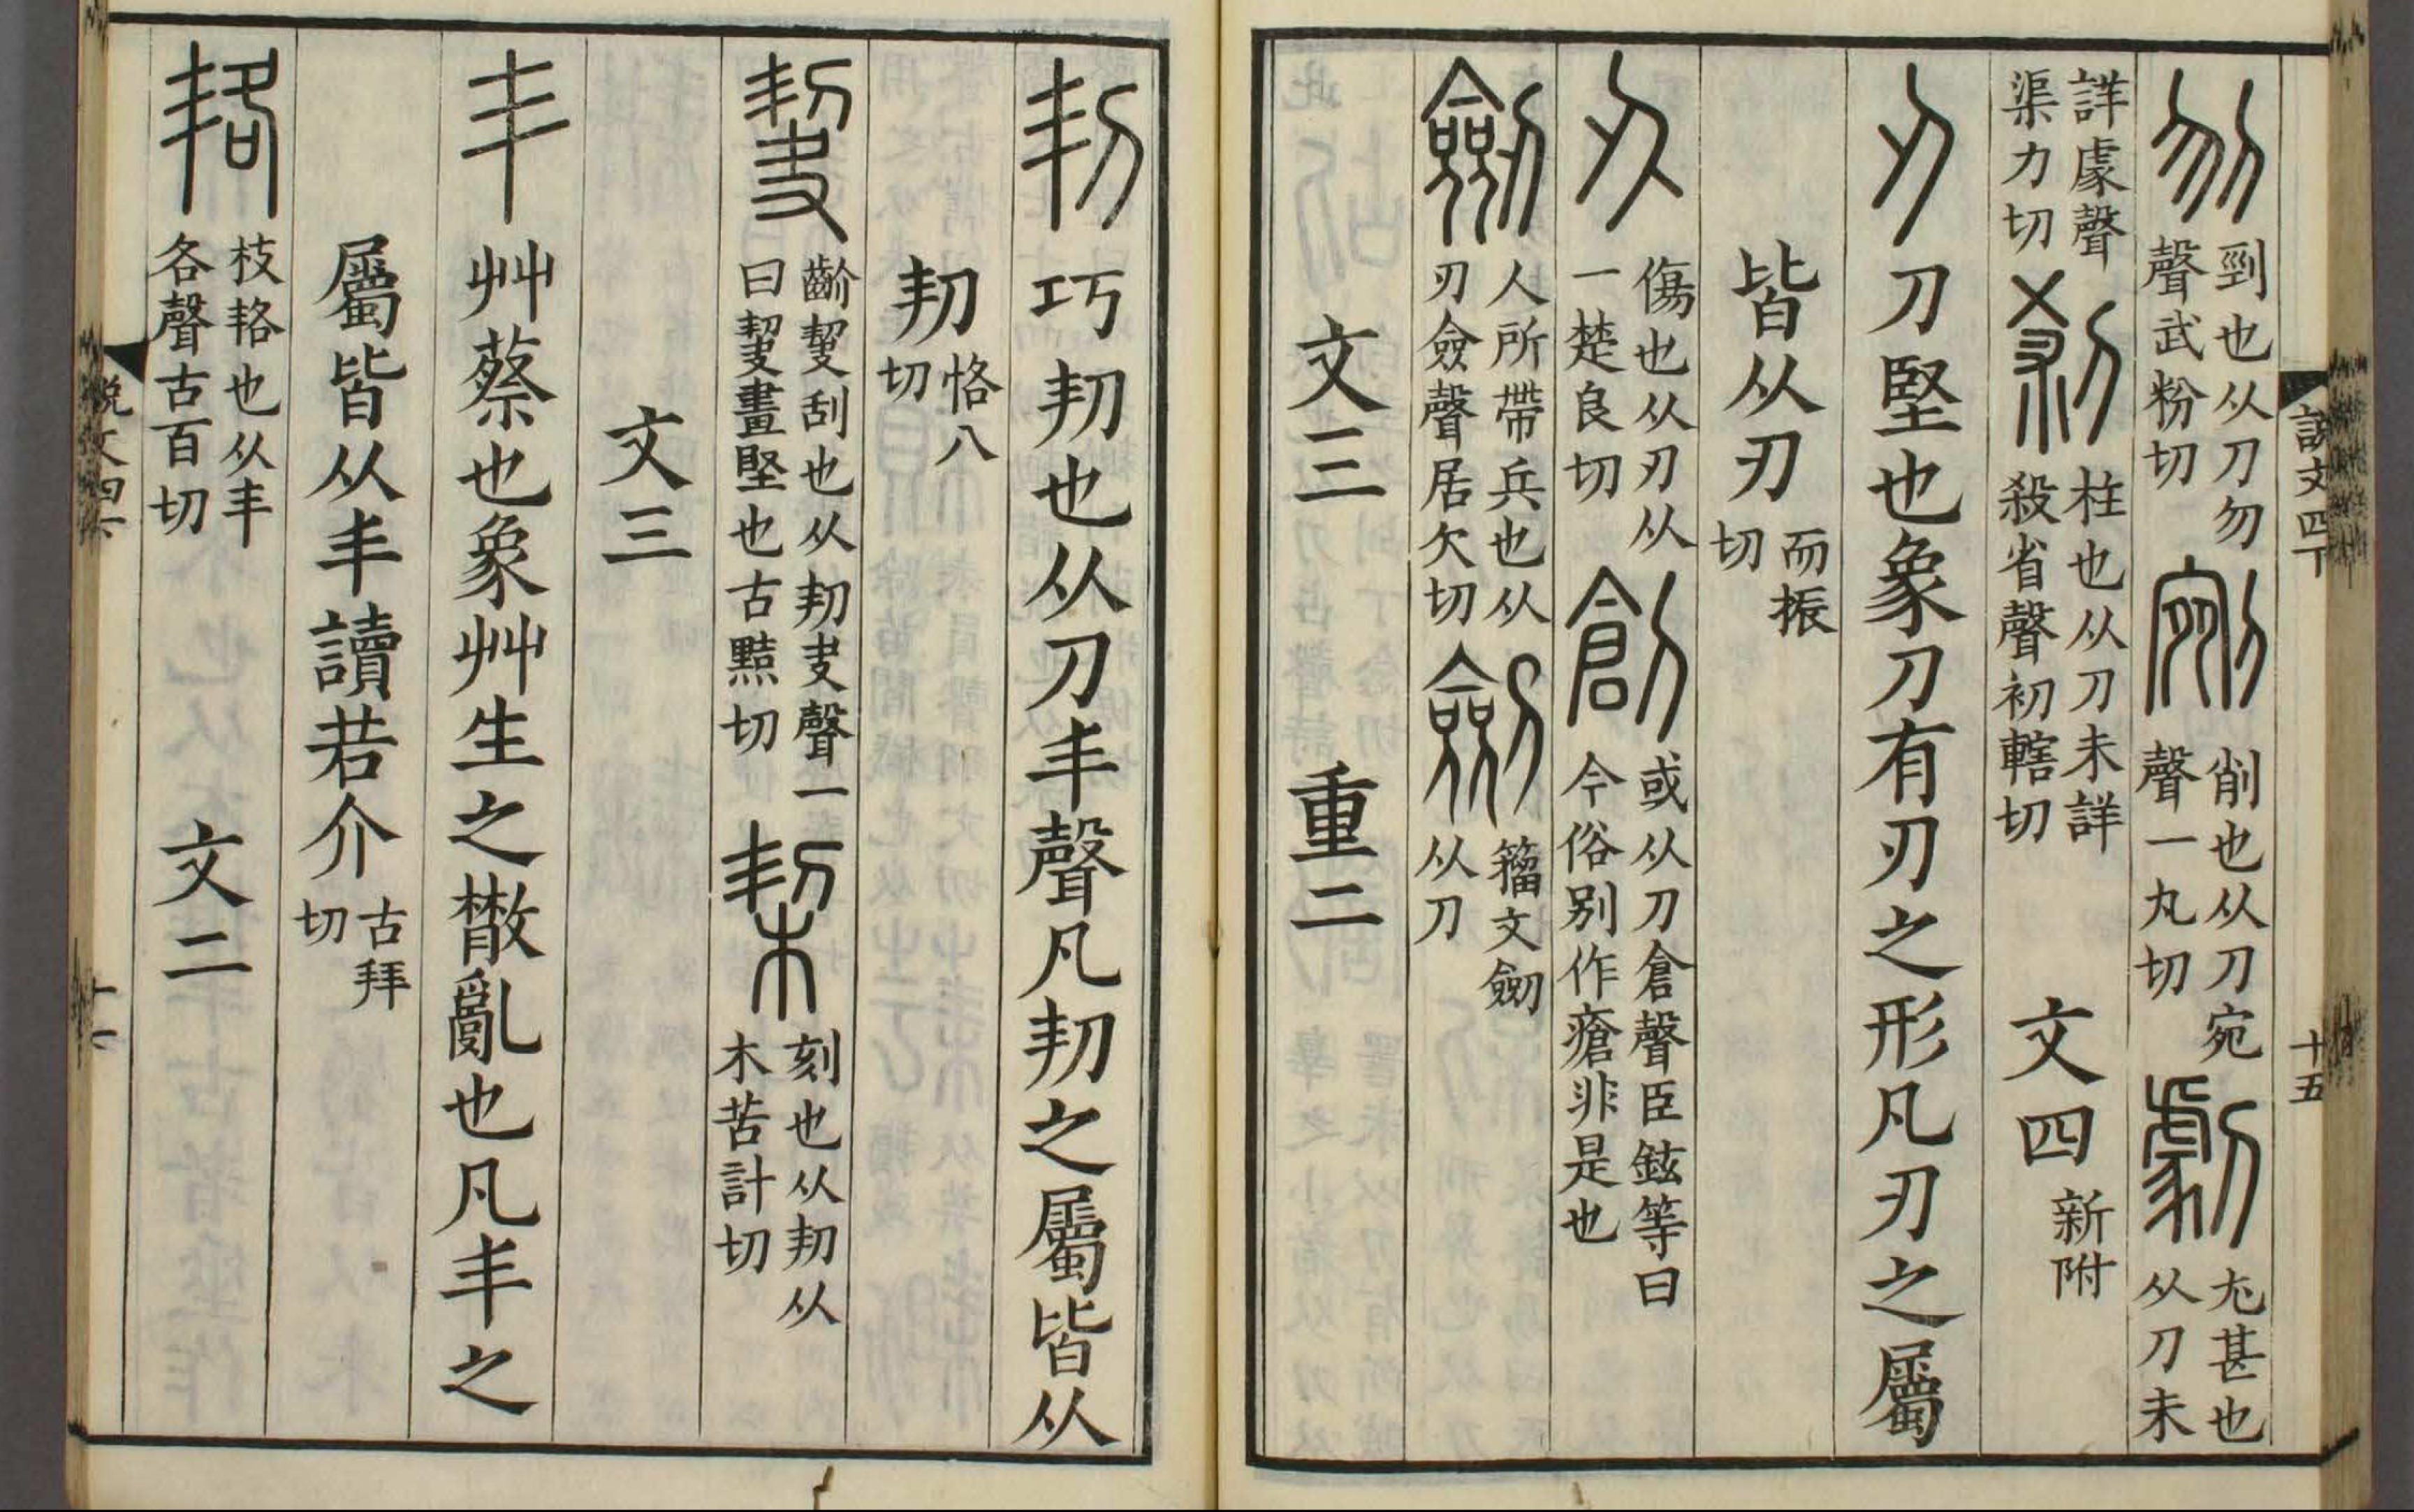 說文四下 十五
刎剄也从刀勿聲武粉切剜削也从刀宛聲一丸切劇尤甚也从刀未
詳豦聲渠力切剎柱也从刀未詳殺省聲初轄切 文四新附
刃刀堅也象刀有刃之形凡刃之屬
皆从刃而振切
刅傷也从刃从一楚良切創或从刀倉聲臣鉉等曰今俗别作瘡非是也
劒人所帶兵也从刃僉聲居欠切劍籒文劒从刀
文三 重二
㓞巧㓞也从刀丯聲凡㓞之屬皆从
㓞恪八切
齘刮也从㓞夬聲一曰畫堅也古黠切栔刻也从㓞从木苦計切
文三
丯艸蔡也象艸生之㪚亂也凡丯之
屬皆从丯讀若介古拜切
枝也从丯各聲古百切 文二
說文四下